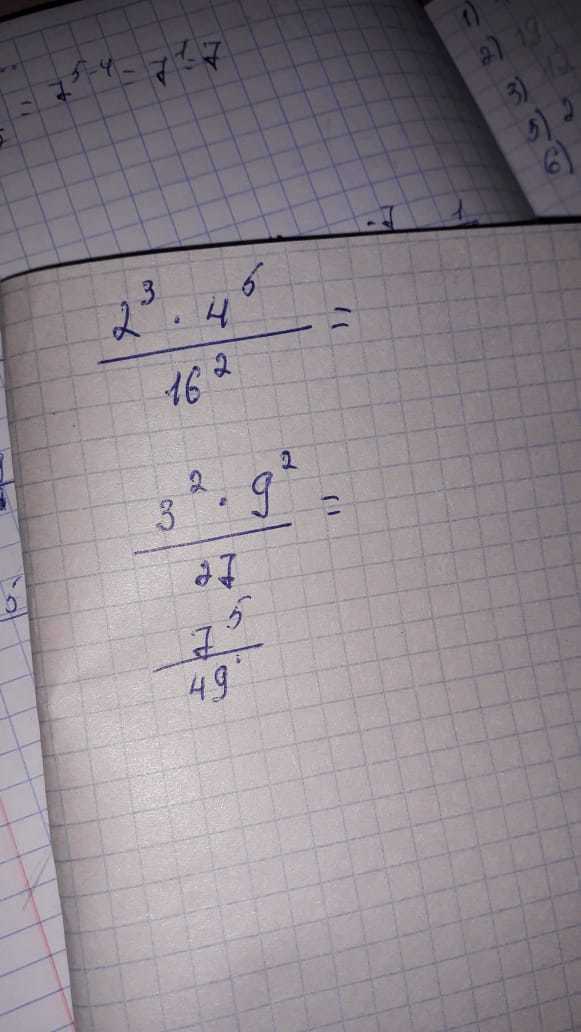 = 7^{5-4} = 7^1 = 7
1)
2)
3)
5) 2
6)
-7 1
\frac{2^3 \cdot 4^5}{16^2} =
\frac{3^2 \cdot 9^2}{27} =
5
\frac{7^5}{49}